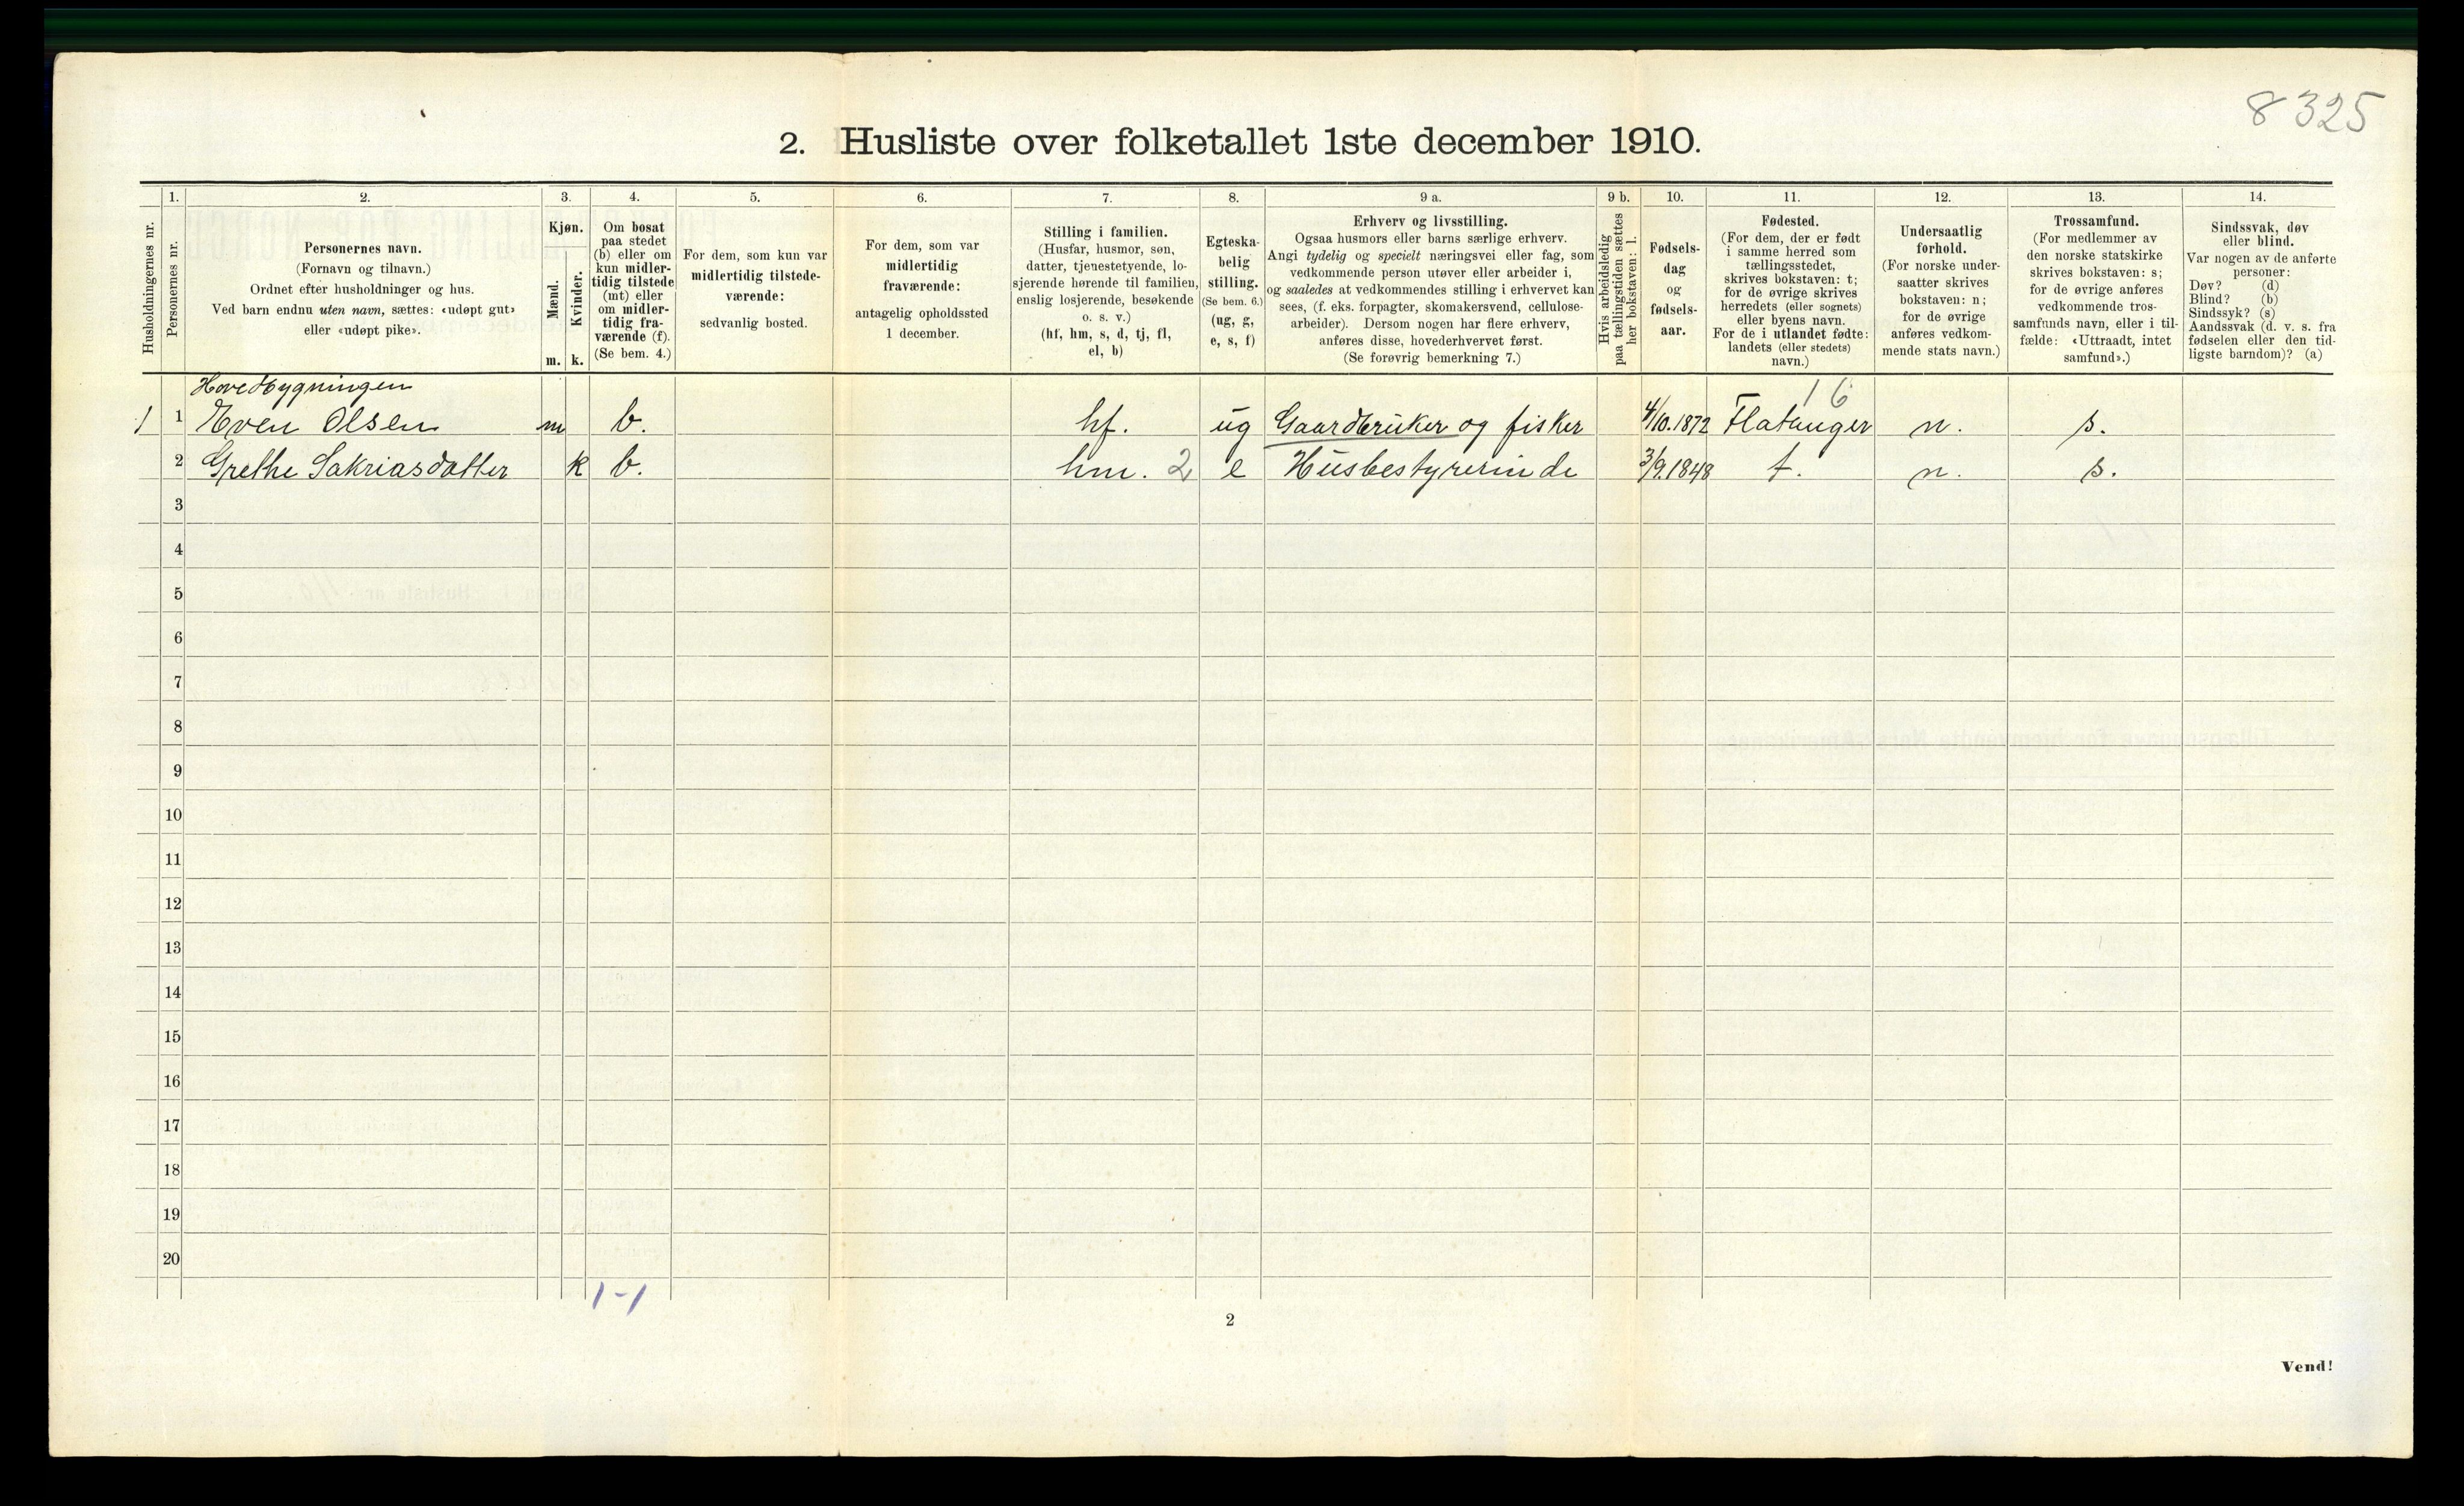 8325
2. Husliste over folketallet 1ste december 1910.
Husholdningernes nr.
1.
Personernes nr.
2.
Personernes navn.
(Fornavn og tilnavn.)
Ordnet efter husholdninger og hus.
Ved barn endnu uten navn, sættes: «udøpt gut»
eller «udøpt pike».
3.
Kjøn.
Mænd.
m.
Kvinder.
k.
4.
Om bosat
paa stedet
(b) eller om
kun midler-
tidig tilstede
(mt) eller
om midler-
tidig fra-
værende (f).
(Se bem. 4.)
5.
For dem, som kun var
midlertidig tilstede-
værende:
sedvanlig bosted.
6.
For dem, som var
midlertidig
fraværende:
antagelig opholdssted
1 december.
7.
Stilling i familien.
(Husfar, husmor, søn,
datter, tjenestetyende, lo-
sjerende hørende til familien,
enslig losjerende, besøkende
o. s. v.)
(hf, hm, s, d, tj, fl,
el, b)
8.
Egteska-
belig
stilling.
(Se bem. 6.)
(ug, g,
e, s, f)
9 a.
Erhverv og livsstilling.
Ogsaa husmors eller barns særlige erhverv.
Angi tydelig og specielt næringsvei eller fag, som
vedkommende person utøver eller arbeider i,
og saaledes at vedkommendes stilling i erhvervet kan
sees, (f. eks. forpagter, skomakersvend, cellulose-
arbeider). Dersom nogen har flere erhverv,
anføres disse, hovederhvervet først.
(Se forøvrig bemerkning 7.)
9 b.
Hvis arbeidsledig
paa tællingstiden sættes
her bokstaven: l.
10.
Fødsels-
dag
og
fødsels-
aar.
11.
Fødested.
(For dem, der er født
i samme herred som
tællingsstedet,
skrives bokstaven: t;
for de øvrige skrives
herredets (eller sognets)
eller byens navn.
For de i utlandet fødte:
landets (eller stedets)
navn.)
12.
Undersaatlig
forhold.
(For norske under-
saatter skrives
bokstaven: n;
for de øvrige
anføres vedkom-
mende stats navn.)
13.
Trossamfund.
(For medlemmer av
den norske statskirke
skrives bokstaven: s;
for de øvrige anføres
vedkommende tros-
samfunds navn, eller i til-
fælde: «Uttraadt, intet
samfund».)
14.
Sindssvak, døv
eller blind.
Var nogen av de anførte
personer:
Døv? (d)
Blind? (b)
Sindssyk? (s)
Aandssvak (d. v. s. fra
fødselen eller den tid-
ligste barndom)? (a)
Hovedbygningen
16
1 1 Even Olsen m b. hf. ug Gaardbruker og fisker 4/10.1872 Flatanger n. s.
2 Grethe Sakriasdatter k b. hm. 2 e Husbestyrerinde 3/9.1848 t. n. s.
3
4
5
6
7
8
9
10
11
12
13
14
15
16
17
18
19
20
1-1
2
Vend!